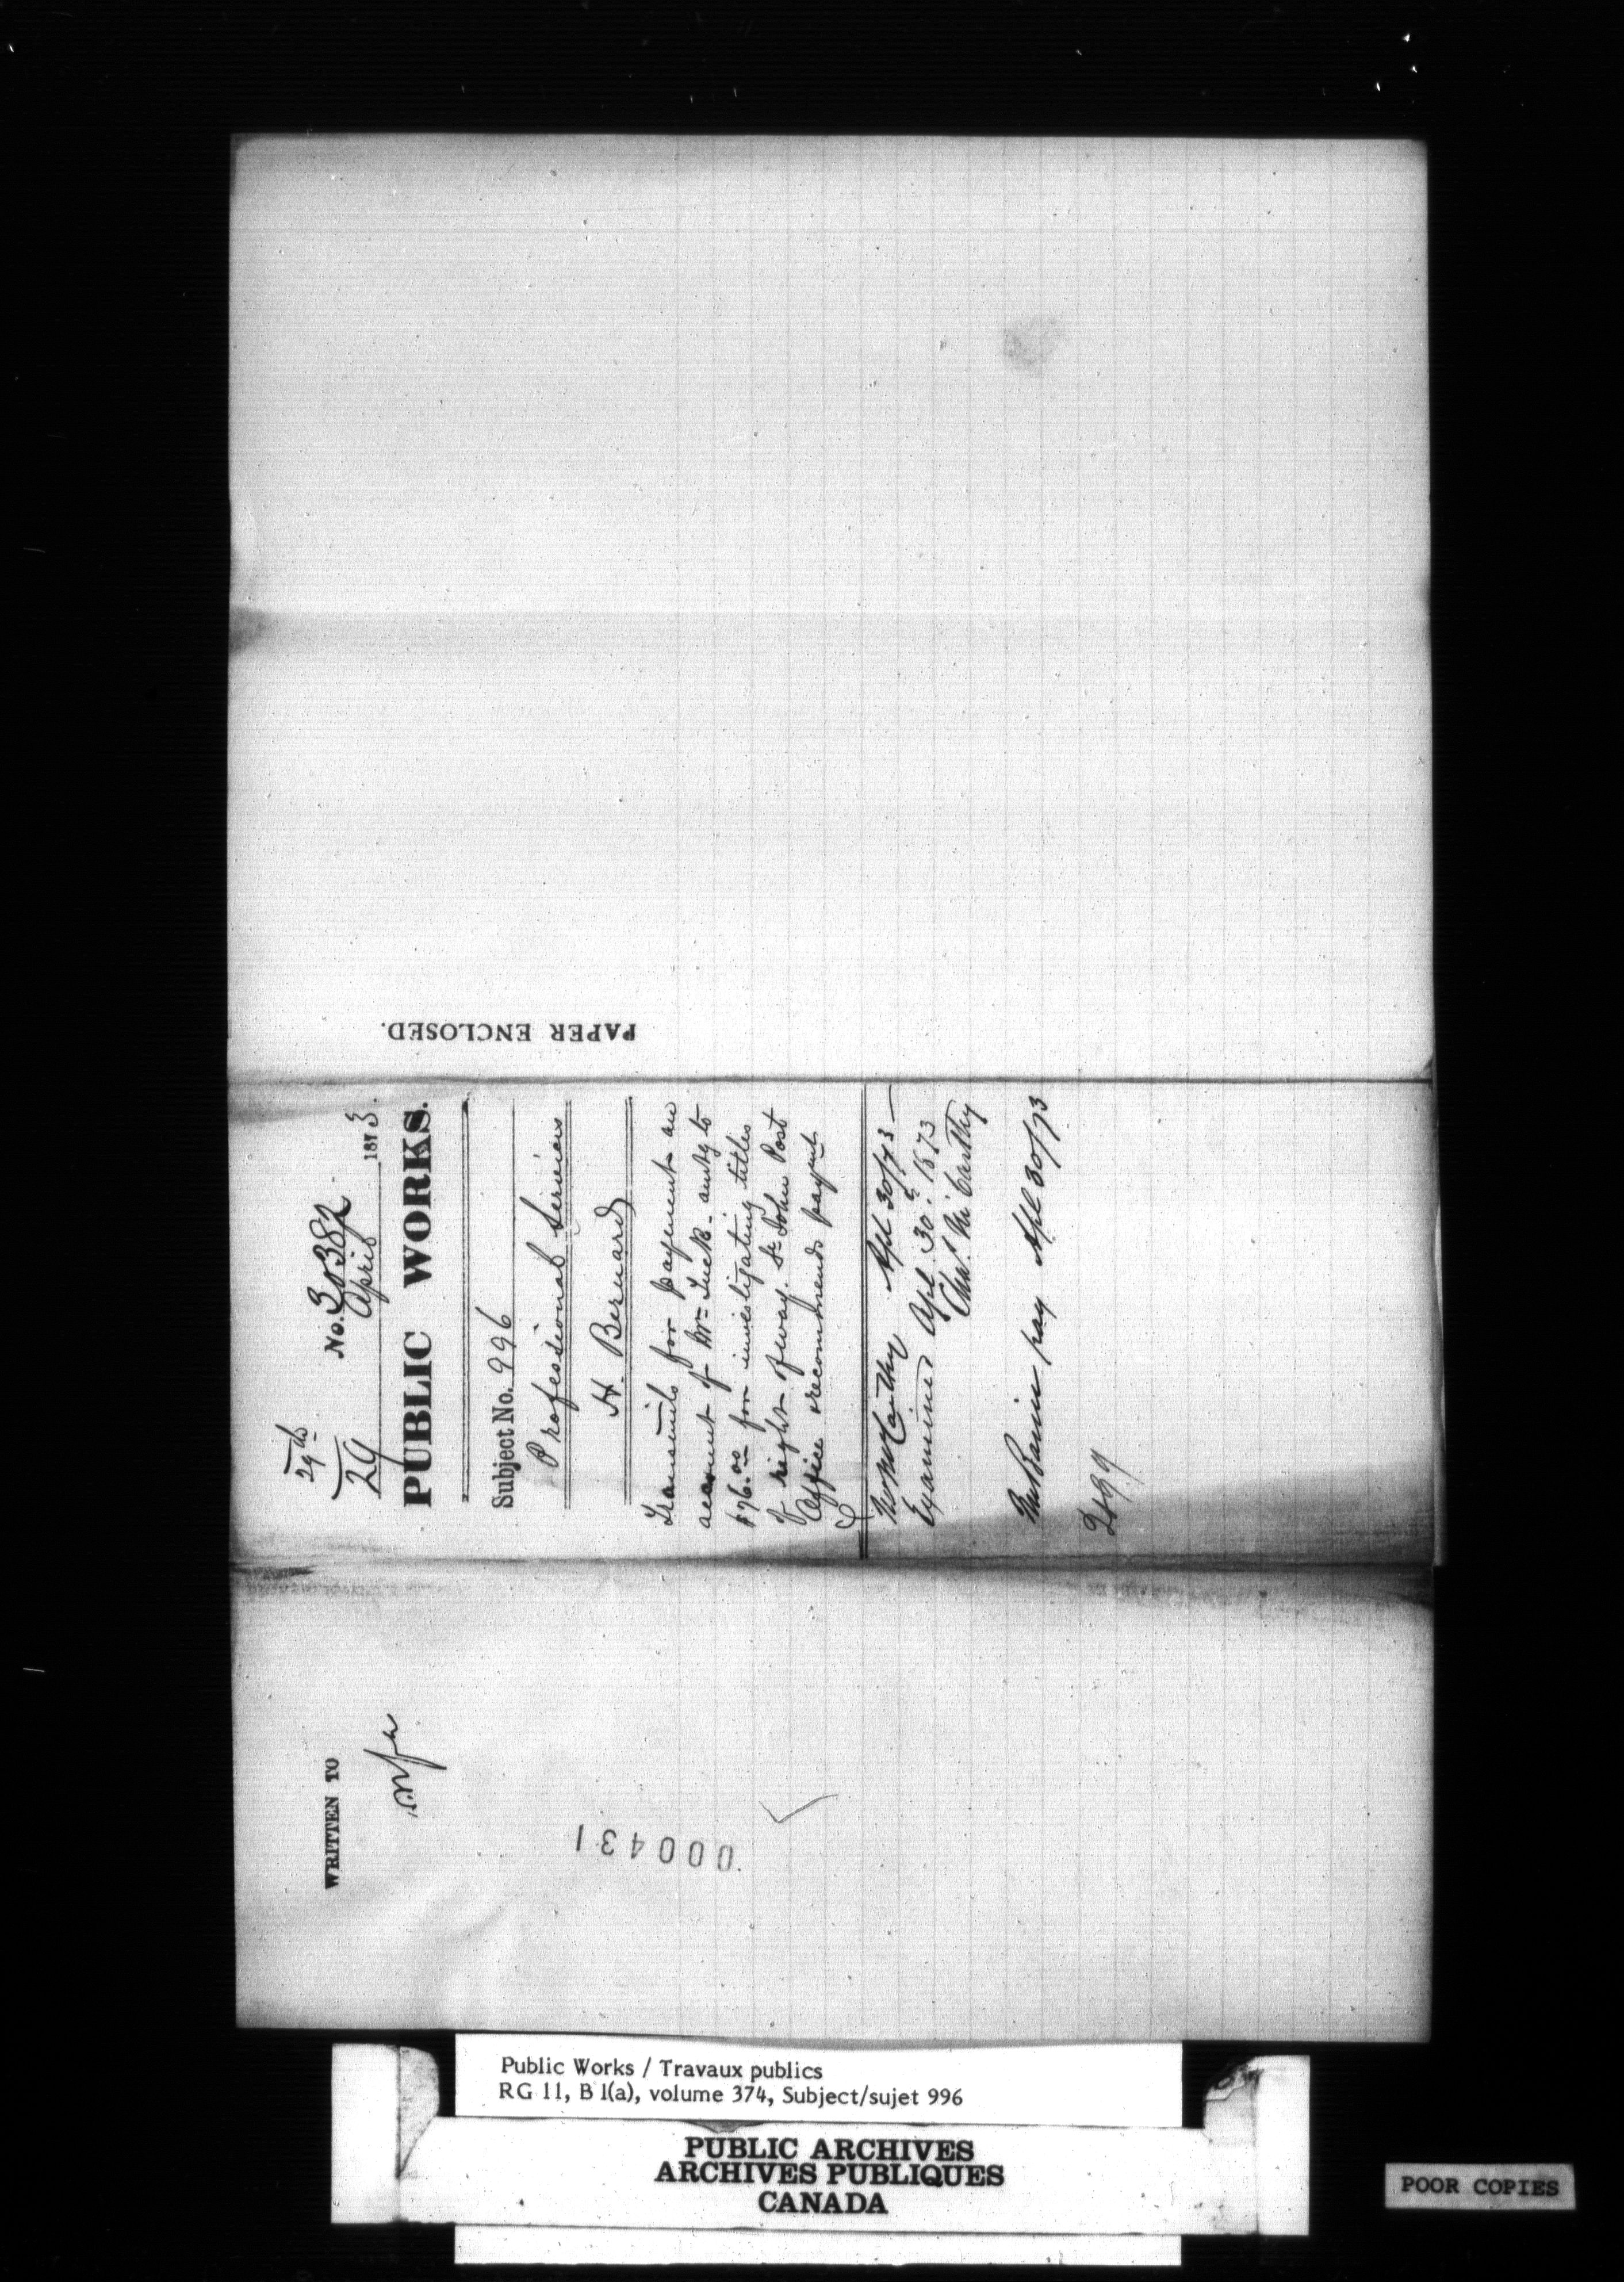 29th
No. 30382
29 April 1873.
PUBLIC WORKS.
Subject No. 996
Professional Services
H. Bernard
Transmits for payment an
account of Mr Tuck amtg to
$96.00 for investigating titles
of right of way. St John Post
Office & recommends payment
Mr McCarthy Apl 30/73
Examined Apl. 30th 1873
Chas. McCarthy
Mr Baine pay Apl 30/73
PAPER ENCLOSED.
WRITTEN TO
000431
Public Works / Travaux publics
RG 11, B 1(a), volume 374, Subject/sujet 996
PUBLIC ARCHIVES
ARCHIVES PUBLIQUES
CANADA
POOR COPIES